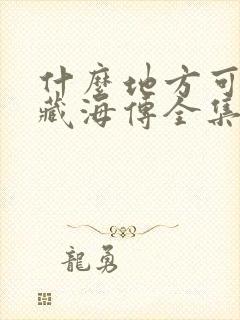 什麼地方可
藏海傳全集
龍勇